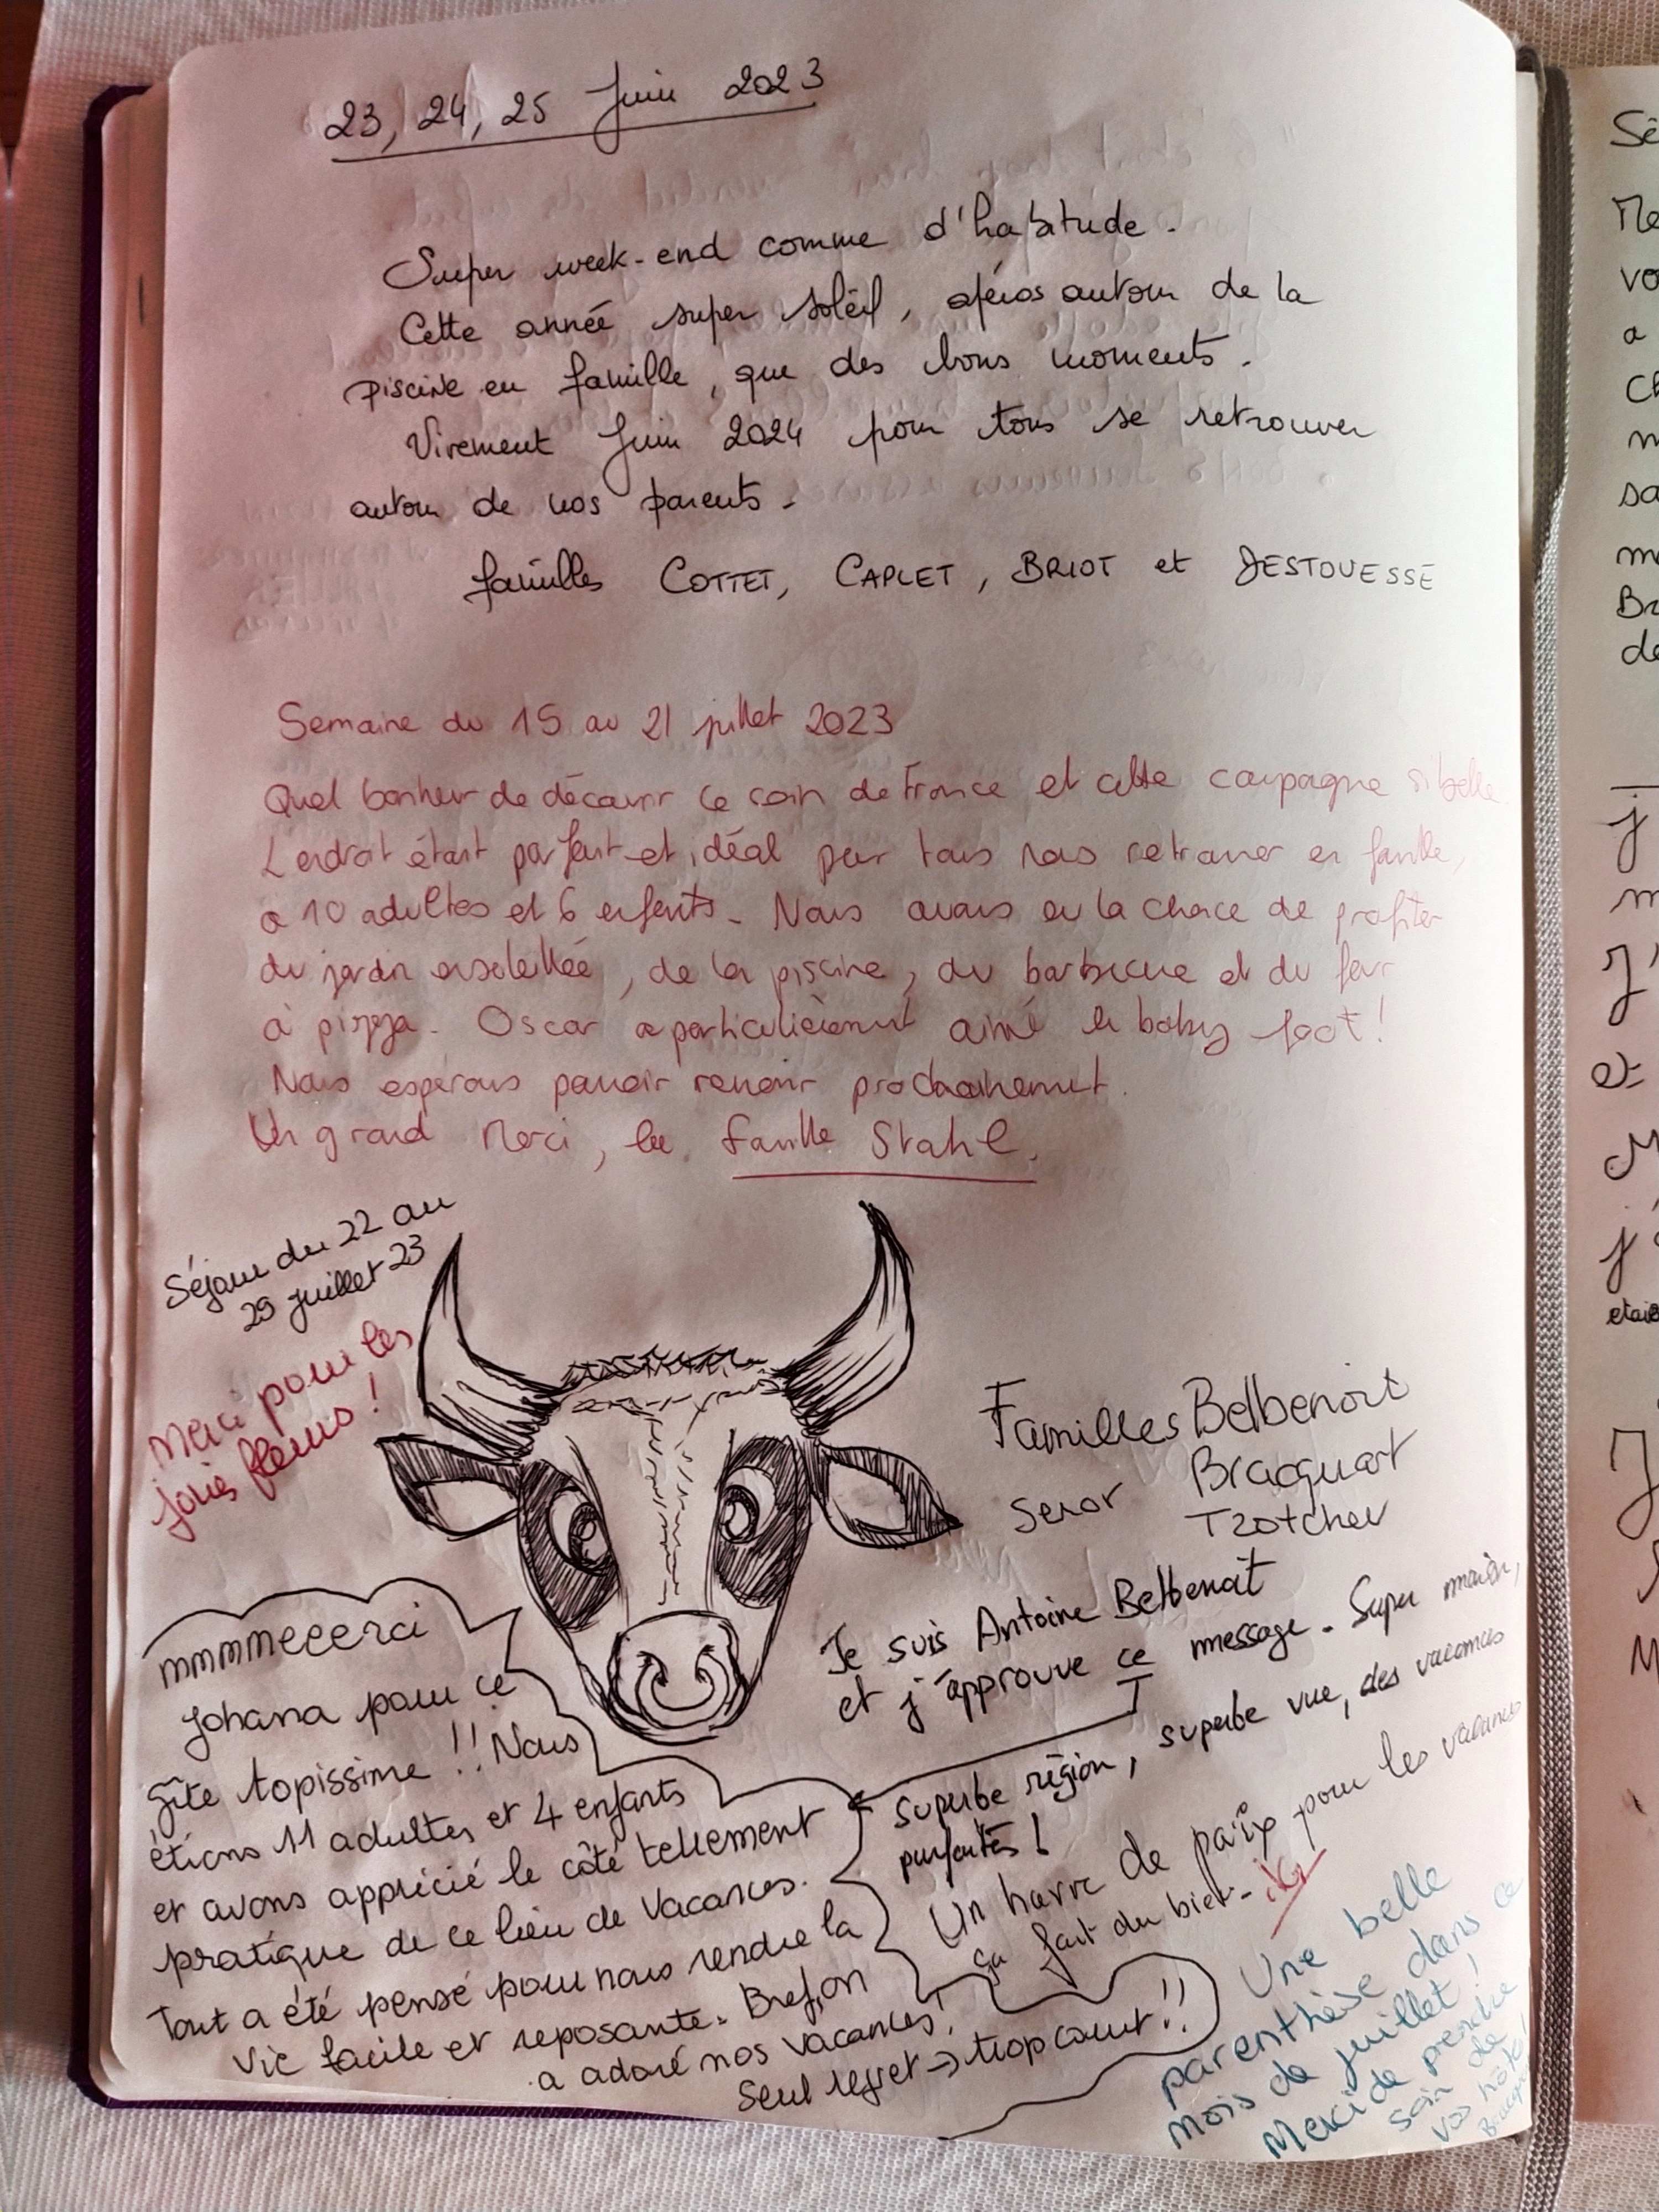 23, 24, 25 Juin 2023
Super week-end comme d'habitude.
Cette année super soleil, apéros autour de la
piscine en famille, que des bons moments.
Virement Juin 2024 pour tous se retrouver
autour de nos parents.
familles COTTET, CAPLET, BRIOT et DESTOUESSE
Semaine du 15 au 21 juillet 2023
Quel bonheur de découvrir ce coin de France et cette campagne si belle.
L'endroit était parfait et idéal pour tous nous retrouver en famille,
à 10 adultes et 6 enfants. Nous avons eu la chance de profiter
du jardin ensoleillée, de la piscine, du barbecue et du four
à pizza. Oscar a particulièrement aimé le baby foot!
Nous espérons pouvoir revenir prochainement.
Un grand Merci, la famille Stahl.
Séjour du 22 au
29 juillet 23
Merci pour les
jolies fleurs!
Familles Belbenoit
Bracquart
Seror
Tzotchev
Je suis Antoine Belbenoit
et j'approuve ce message. Super maison,
superbe région, superbe vue, des vacances
parfaites!
Un havre de paix pour les vacances
ça fait du bien.
mmmmeeerci
Johana pour ce
gîte topissime!! Nous
étions 11 adultes et 4 enfants
et avons apprécié le côté tellement
pratique de ce lieu de vacances.
Tout a été pensé pour nous rendre la
vie facile et reposante. Bref, on
a adoré nos vacances!
Seul regret → trop court!!
Une belle
parenthèse dans ce
mois de juillet!
Merci de prendre
soin de
vos hôtes!
Sé
Me
vo
a
Ch
m
sa
m
Br
de
j
m
J'
et
M
j'
etaie
J
M